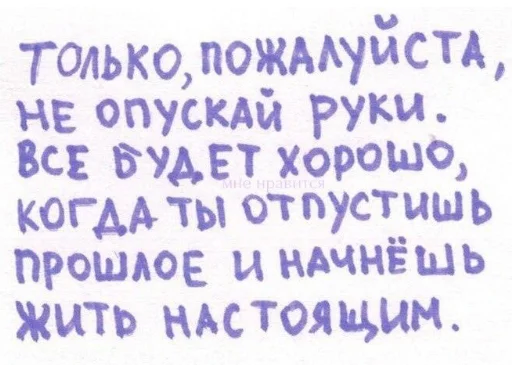 ТОЛЬКО, ПОЖАЛУЙСТА,
НЕ ОПУСКАЙ РУКИ.
ВСЕ БУДЕТ ХОРОШО,
мне нравится
КОГДА ТЫ ОТПУСТИШЬ
ПРОШЛОЕ И НАЧНЁШЬ
ЖИТЬ НАСТОЯЩИМ.